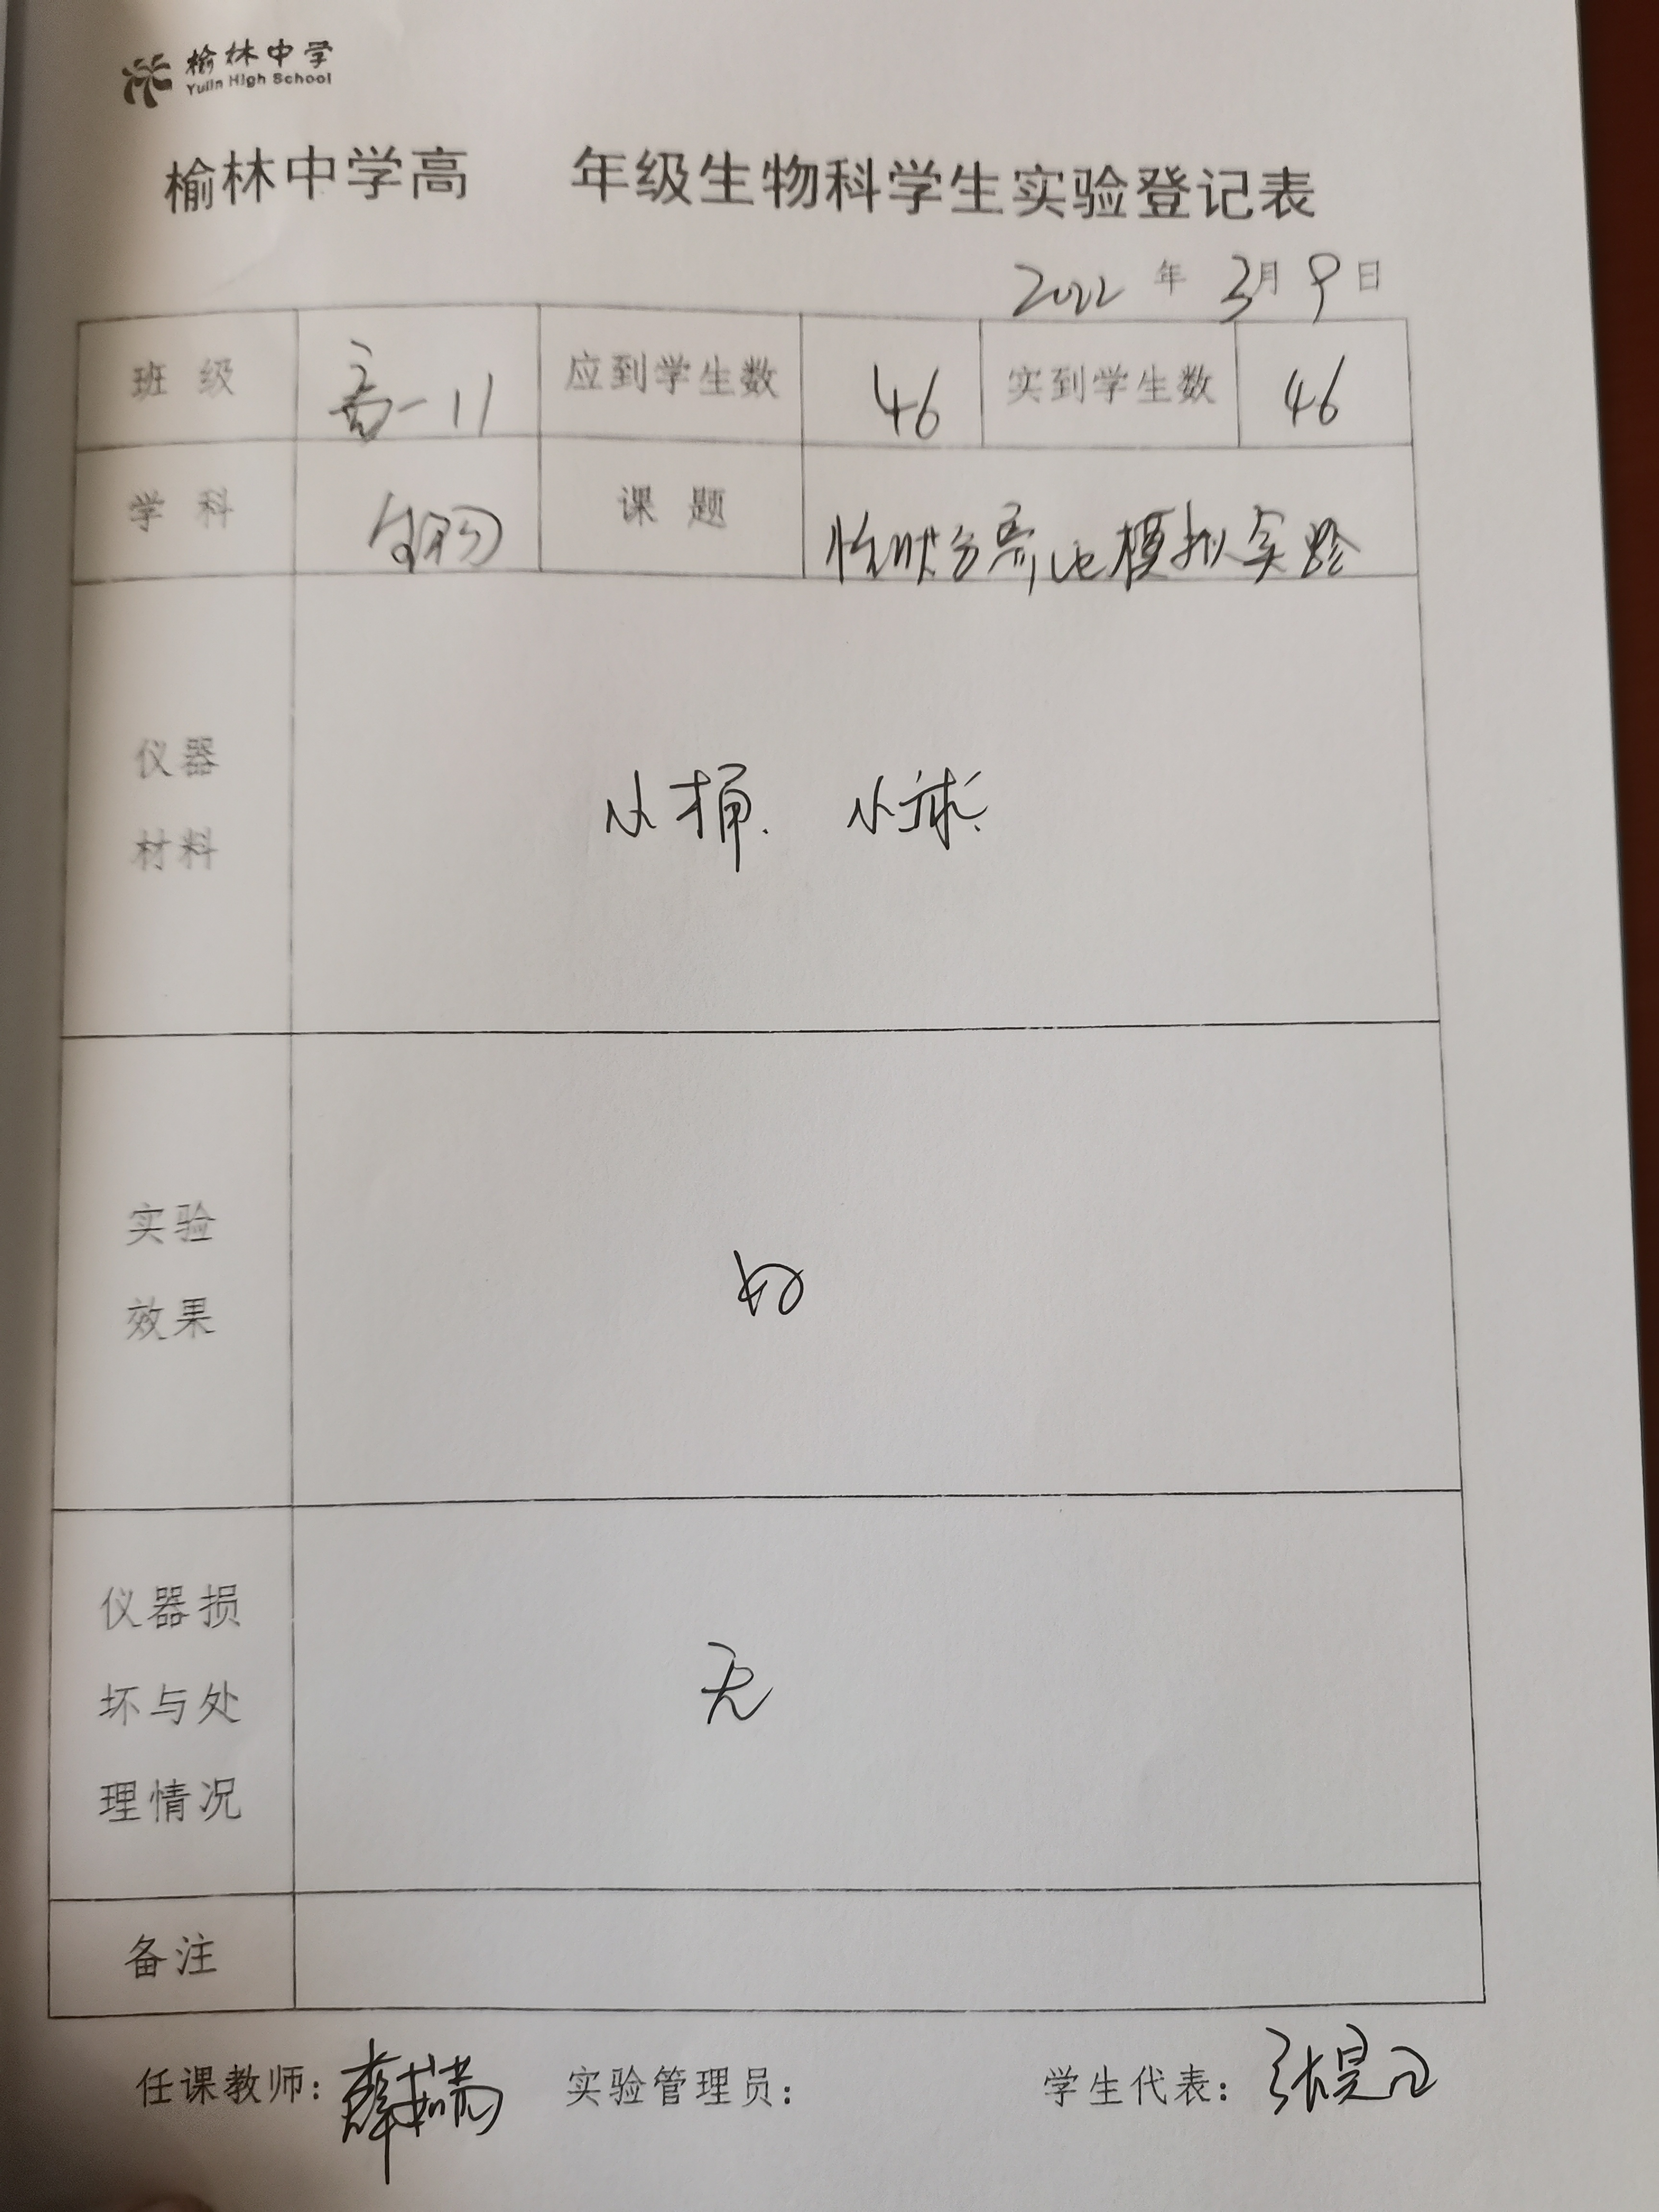 榆林中学
Yulin High School
榆林中学高 年级生物科学生实验登记表
2022 年 3月 9日
班 级 高一11 应到学生数 46 实到学生数 46
学 科 生物 课 题 性状分离比模拟实验
仪器
材料
小桶、小球、
实验
效果
好
仪器损
坏与处
理情况
无
备注
任课教师: 薛 实验管理员: 学生代表: 张